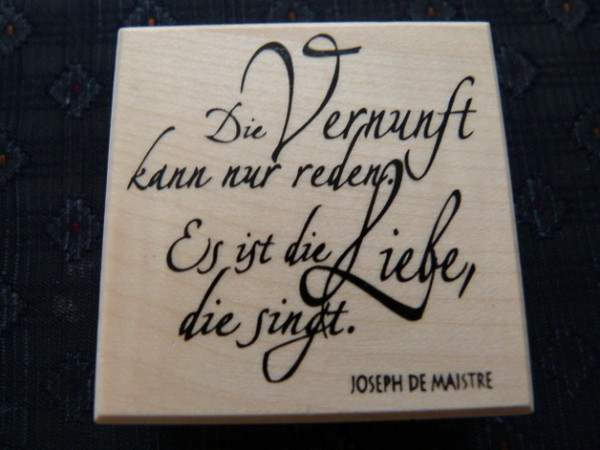 Die Vernunft
kann nur reden.
Es ist die Liebe,
die singt.
JOSEPH DE MAISTRE